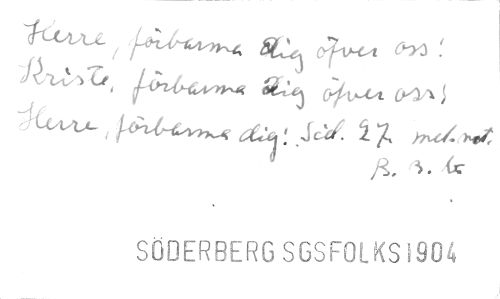 Herre, förbarma dig öfver oss!
Kriste, förbarma dig öfver oss!
Herre, förbarma dig! Sid. 27. mel. not.
B. 3. b
SÖDERBERG SGSFOLKS1904